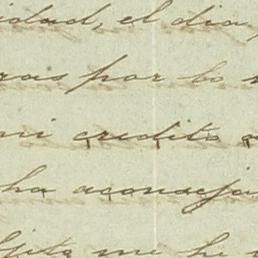 idad, el dia,
ras por lo
mi credito
ha aconseja
me he